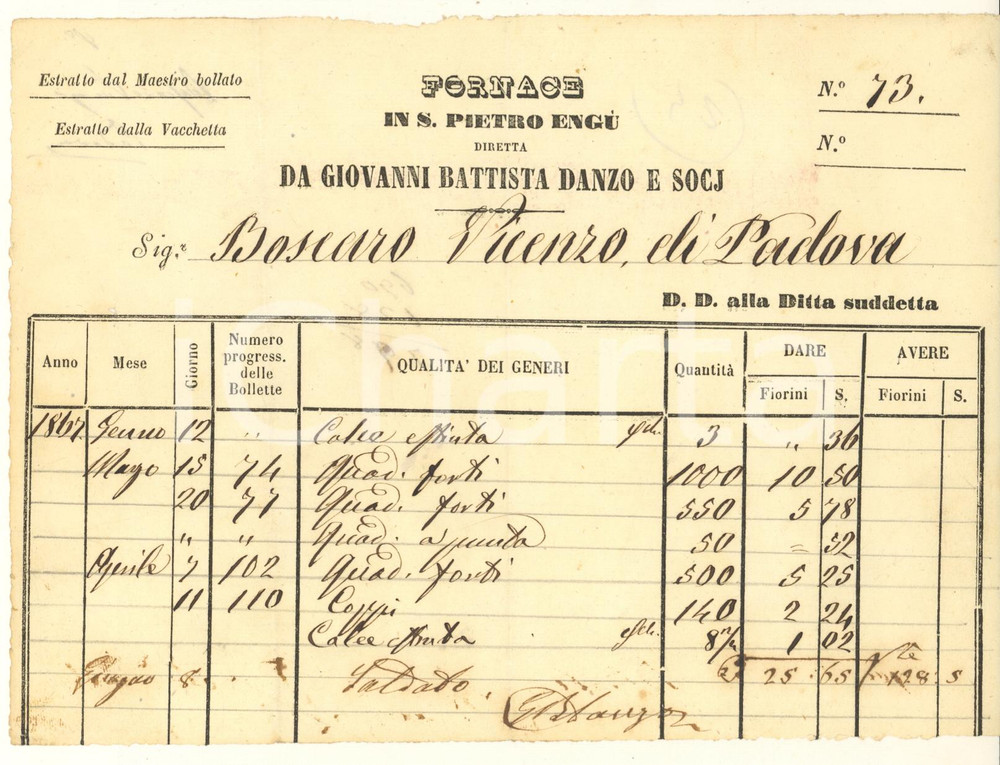 Estratto dal Maestro bollato
Estratto dalla Vacchetta
FORNACE
IN S. PIETRO ENGÙ
DIRETTA
DA GIOVANNI BATTISTA DANZO E SOCJ
N.º 73.
N.º
Sig.r Boscaro Vicenzo, di Padova
D. D. alla Ditta suddetta
Anno Mese Giorno Numero progress. delle Bollette QUALITA' DEI GENERI Quantità DARE Fiorini S. AVERE Fiorini S.
1867 12 " Calce 3 " 36
15 74 Quad. forti 1000 10 50
20 77 Quad. forti 550 5 78
" " Quad. a punta 50 = 52
Aprile 7 102 Quad. forti 500 5 25
11 110 Coppi 140 2 24
Calce 8 1 02
Giugno 8 Saldato 25 65 128 5
iCharta